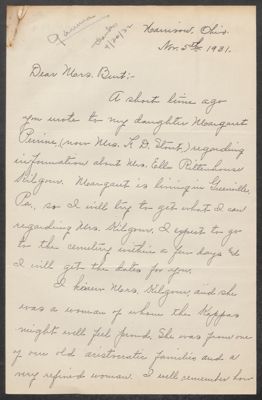 Harrison, Ohio.
Nov. 5th, 1931.
9/20/32
Dear Mrs. Burt:-
A short time ago
you wrote to my daughter Margaret
Perine, (now Mrs. K. D. Stout) regarding
information about Mrs. Ella Rittenhouse
Kilgour. Margaret is living in Greenville,
Pa., so I will try to get what I can
regarding Mrs. Kilgour. I expect to go
to the cemetery within a few days &
I will get the dates for you.
I knew Mrs. Kilgour, and she
was a woman of whom the Kappas
might well feel proud. She was from one
of our old aristocratic families and a
very refined woman. I well remember how